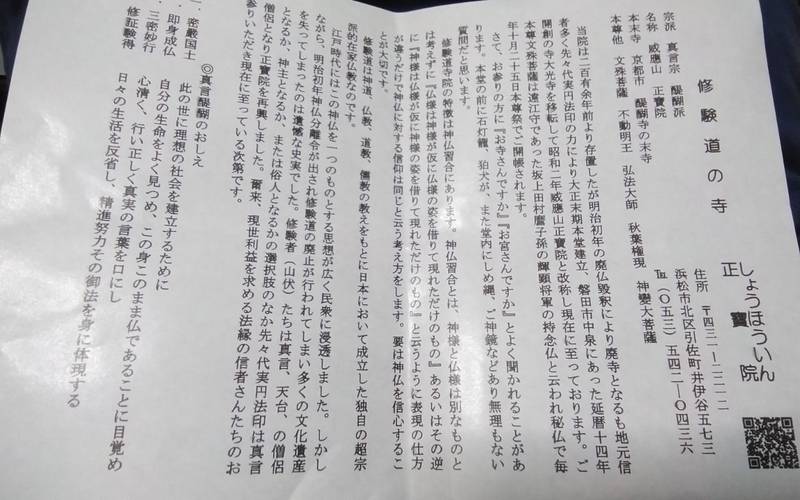 修験道の寺
しょうほういん
正寶院
宗派 真言宗 醍醐派
名称 威應山 正寶院
本末寺 京都市 醍醐寺の末寺
本尊他 文殊菩薩 不動明王 弘法大師 秋葉権現 神變大菩薩
住所 〒四三一ー二二一二
浜松市北区引佐町井伊谷五七三
℡(〇五三)五四二ー〇四三六
当院は二百有余年前より存置したが明治初年の廃仏毀釈により廃寺となるも地元信
者多く先々代実円法印の力により大正末期本堂建立、磐田市中泉にあった延暦十四年
開創の寺大光寺を移転して昭和二年威應山正寶院と改称し現在に至っております。ご
本尊文殊菩薩は遠江守であった坂上田村麿子孫の輝顕将軍の持念仏と云われ秘仏で毎
年十月二十五日本尊祭でご開帳されます。
さて、お参りの方に『お寺さんですか』『お宮さんですか』とよく聞かれることがあ
ります。本堂の前に石灯籠、狛犬が、また堂内にしめ縄、ご神鏡などあり無理もない
質問だと思います。
修験道寺院の特徴は神仏習合にあります。神仏習合とは、神様と仏様は別なものと
は考えずに『仏様は神様が仮に仏様の姿を借りて現れただけのもの』あるいはその逆
に『神様は仏様が仮に神様の姿を借りて現れただけのもの』と云うように表現の仕方
が違うだけで神仏に対する信仰は同じと云う考え方をします。要は神仏を信心するこ
とが大切です。
修験道は神道、仏教、道教、儒教の教えをもとに日本において成立した独自の超宗
派的在家仏教なのです。
江戸時代にはこの神仏を一つのものとする思想が広く民衆に浸透しました。しかし
ながら、明治初年神仏分離令が出され修験道の廃止が行われてしまい多くの文化遺産
を失ってしまったのは遺憾な史実でした。修験者(山伏)たちは真言、天台、の僧侶
となるか、神主となるか、または俗人となるかの選択肢のなか先々代実円法印は真言
僧侶となり正寶院を再興しました。爾来、現世利益を求める法縁の信者さんたちのお
参りいただき現在に至っている次第です。
◎真言醍醐のおしえ
一、密厳国土 此の世に理想の社会を建立するために
・即身成仏 自分の生命をよく見つめ、この身このまま仏であることに目覚め
・三密妙行 心清く、行い正しく真実の言葉を口にし
・修証験得 日々の生活を反省し、精進努力その御法を身に体現する